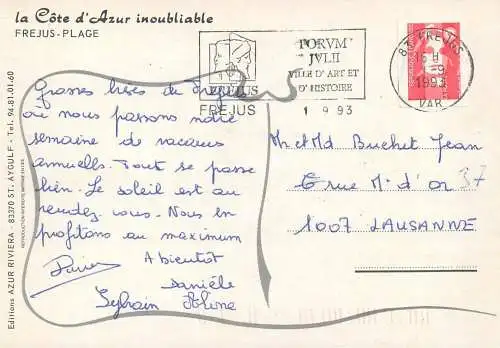 la Côte d'Azur inoubliable
FREJUS-PLAGE
FREJUS
FREJUS
FORVM
JVLII
VILLE D'ART ET
D'HISTOIRE
1 9 93
83 FREJUS
16 H
1-9
1993
VAR
Grosses bises de Fréjus
où nous passons notre
semaine de vacances
annuelles. Tout se passe
bien. Le soleil est au
rendez-vous. Nous en
profitons au maximum
A bientôt
Danièle
Sylvain
Mr et Md Buchet Jean
6 rue M. d'or 37
1007 LAUSANNE
Editions AZUR RIVIERA - 83370 ST. AYGULF - Tel. 94.81.01.60